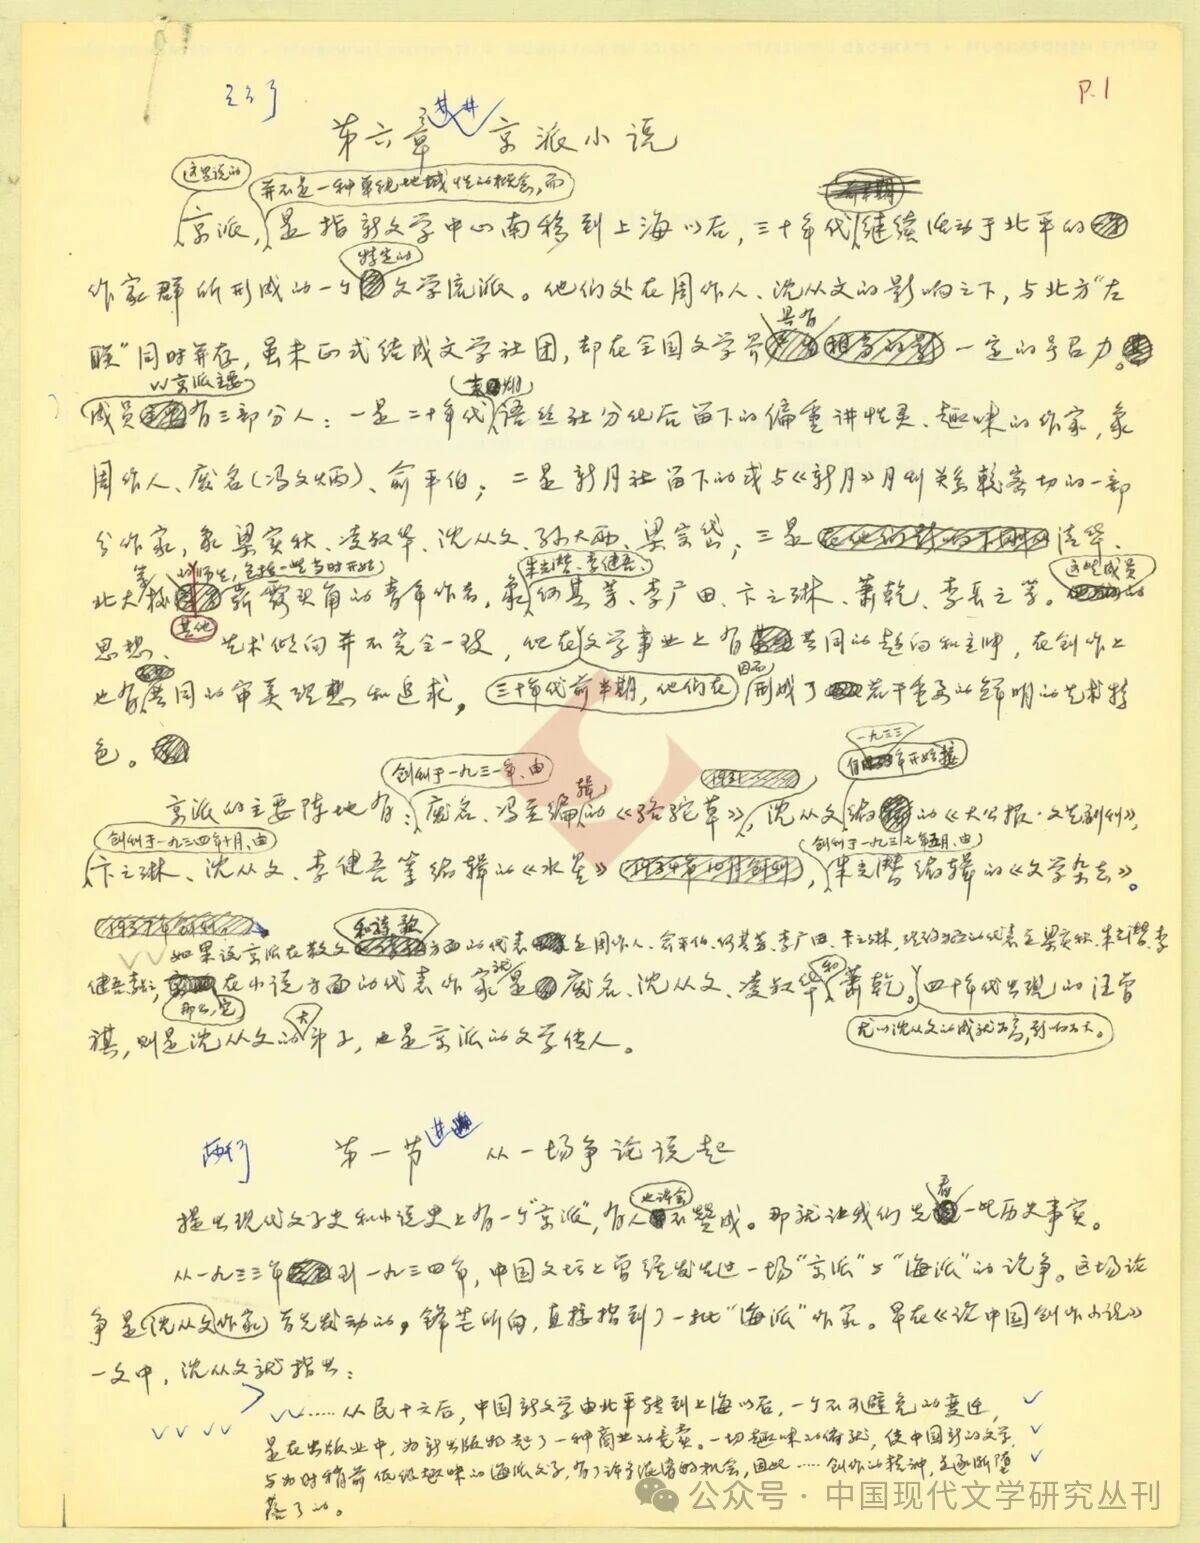 P.1
第六章 京派小说
这里说的 并不是一种单纯地域性的概念,而
京派,是指新文学中心南移到上海以后,三十年代继续活动于北平的
特定的
作家群所形成的一个文学流派。他们处在周作人、沈从文的影响之下,与北方“左
具有
联”同时并存,虽未正式结成文学社团,却在全国文学界一定的号召力。
京派主要
成员有三部分人:一是二十年代语丝社分化后留下的偏重讲性灵、趣味的作家,象
周作人、废名(冯文炳)、俞平伯;二是新月社留下的或与《新月》月刊关系较密切的一部
分作家,象梁实秋、凌叔华、沈从文、孙大雨、梁宗岱;三是清华、
等 的师生,包括一些当时开始 朱光潜、李健吾、 这些成员
北大校崭露头角的青年作者,象何其芳、李广田、卞之琳、萧乾、李长之等。的
其他
思想、艺术倾向并不完全一致,但在文学事业上有共同的趋向和主张,在创作上
因而
也有共同的审美理想和追求,三十年代前半期,他们在形成了若干重要的鲜明的艺术特
色。
创刊于一九三一年、由 辑 一九三三
年开始接
京派的主要阵地有:废名、冯至编的《骆驼草》,沈从文编的《大公报·文艺副刊》,
创刊于一九三四年十月、由 创刊于一九三七年五月、由
卞之琳、沈从文、李健吾等编辑的《水星》,朱光潜编辑的《文学杂志》。
和诗歌
如果说京派在散文方面的代表是周作人、俞平伯、何其芳、李广田、卞之琳,理论方面的代表是梁实秋、朱光潜、李
健吾、李长之,在小说方面的代表作家就是废名、沈从文、凌叔华和萧乾。四十年代出现的汪曾
那么,它 大 尤以沈从文的成就为高,影响为大。
祺,则是沈从文的弟子,也是京派的文学传人。
两行 第一节 从一场争论说起
也许会 看
提出现代文学史和小说史上有一个“京派”,有人不赞成。那就让我们先一些历史事实。
从一九三三年到一九三四年,中国文坛上曾经发生过一场“京派”与“海派”的论争。这场论
争是沈从文作家首先发动的,锋芒所向,直接指到了一批“海派”作家。早在《论中国创作小说》
一文中,沈从文就指出:
……从民十六后,中国新文学由北平转到上海以后,一个不可避免的变迁,
是在出版业中,为新出版物起了一种商业的竞卖。一切趣味的俯就,使中国新的文学,
与为时稍前低级趣味的海派文学,有了许多混淆的机会,因此……创作的精神,是逐渐堕
落了的。
公众号·中国现代文学研究丛刊